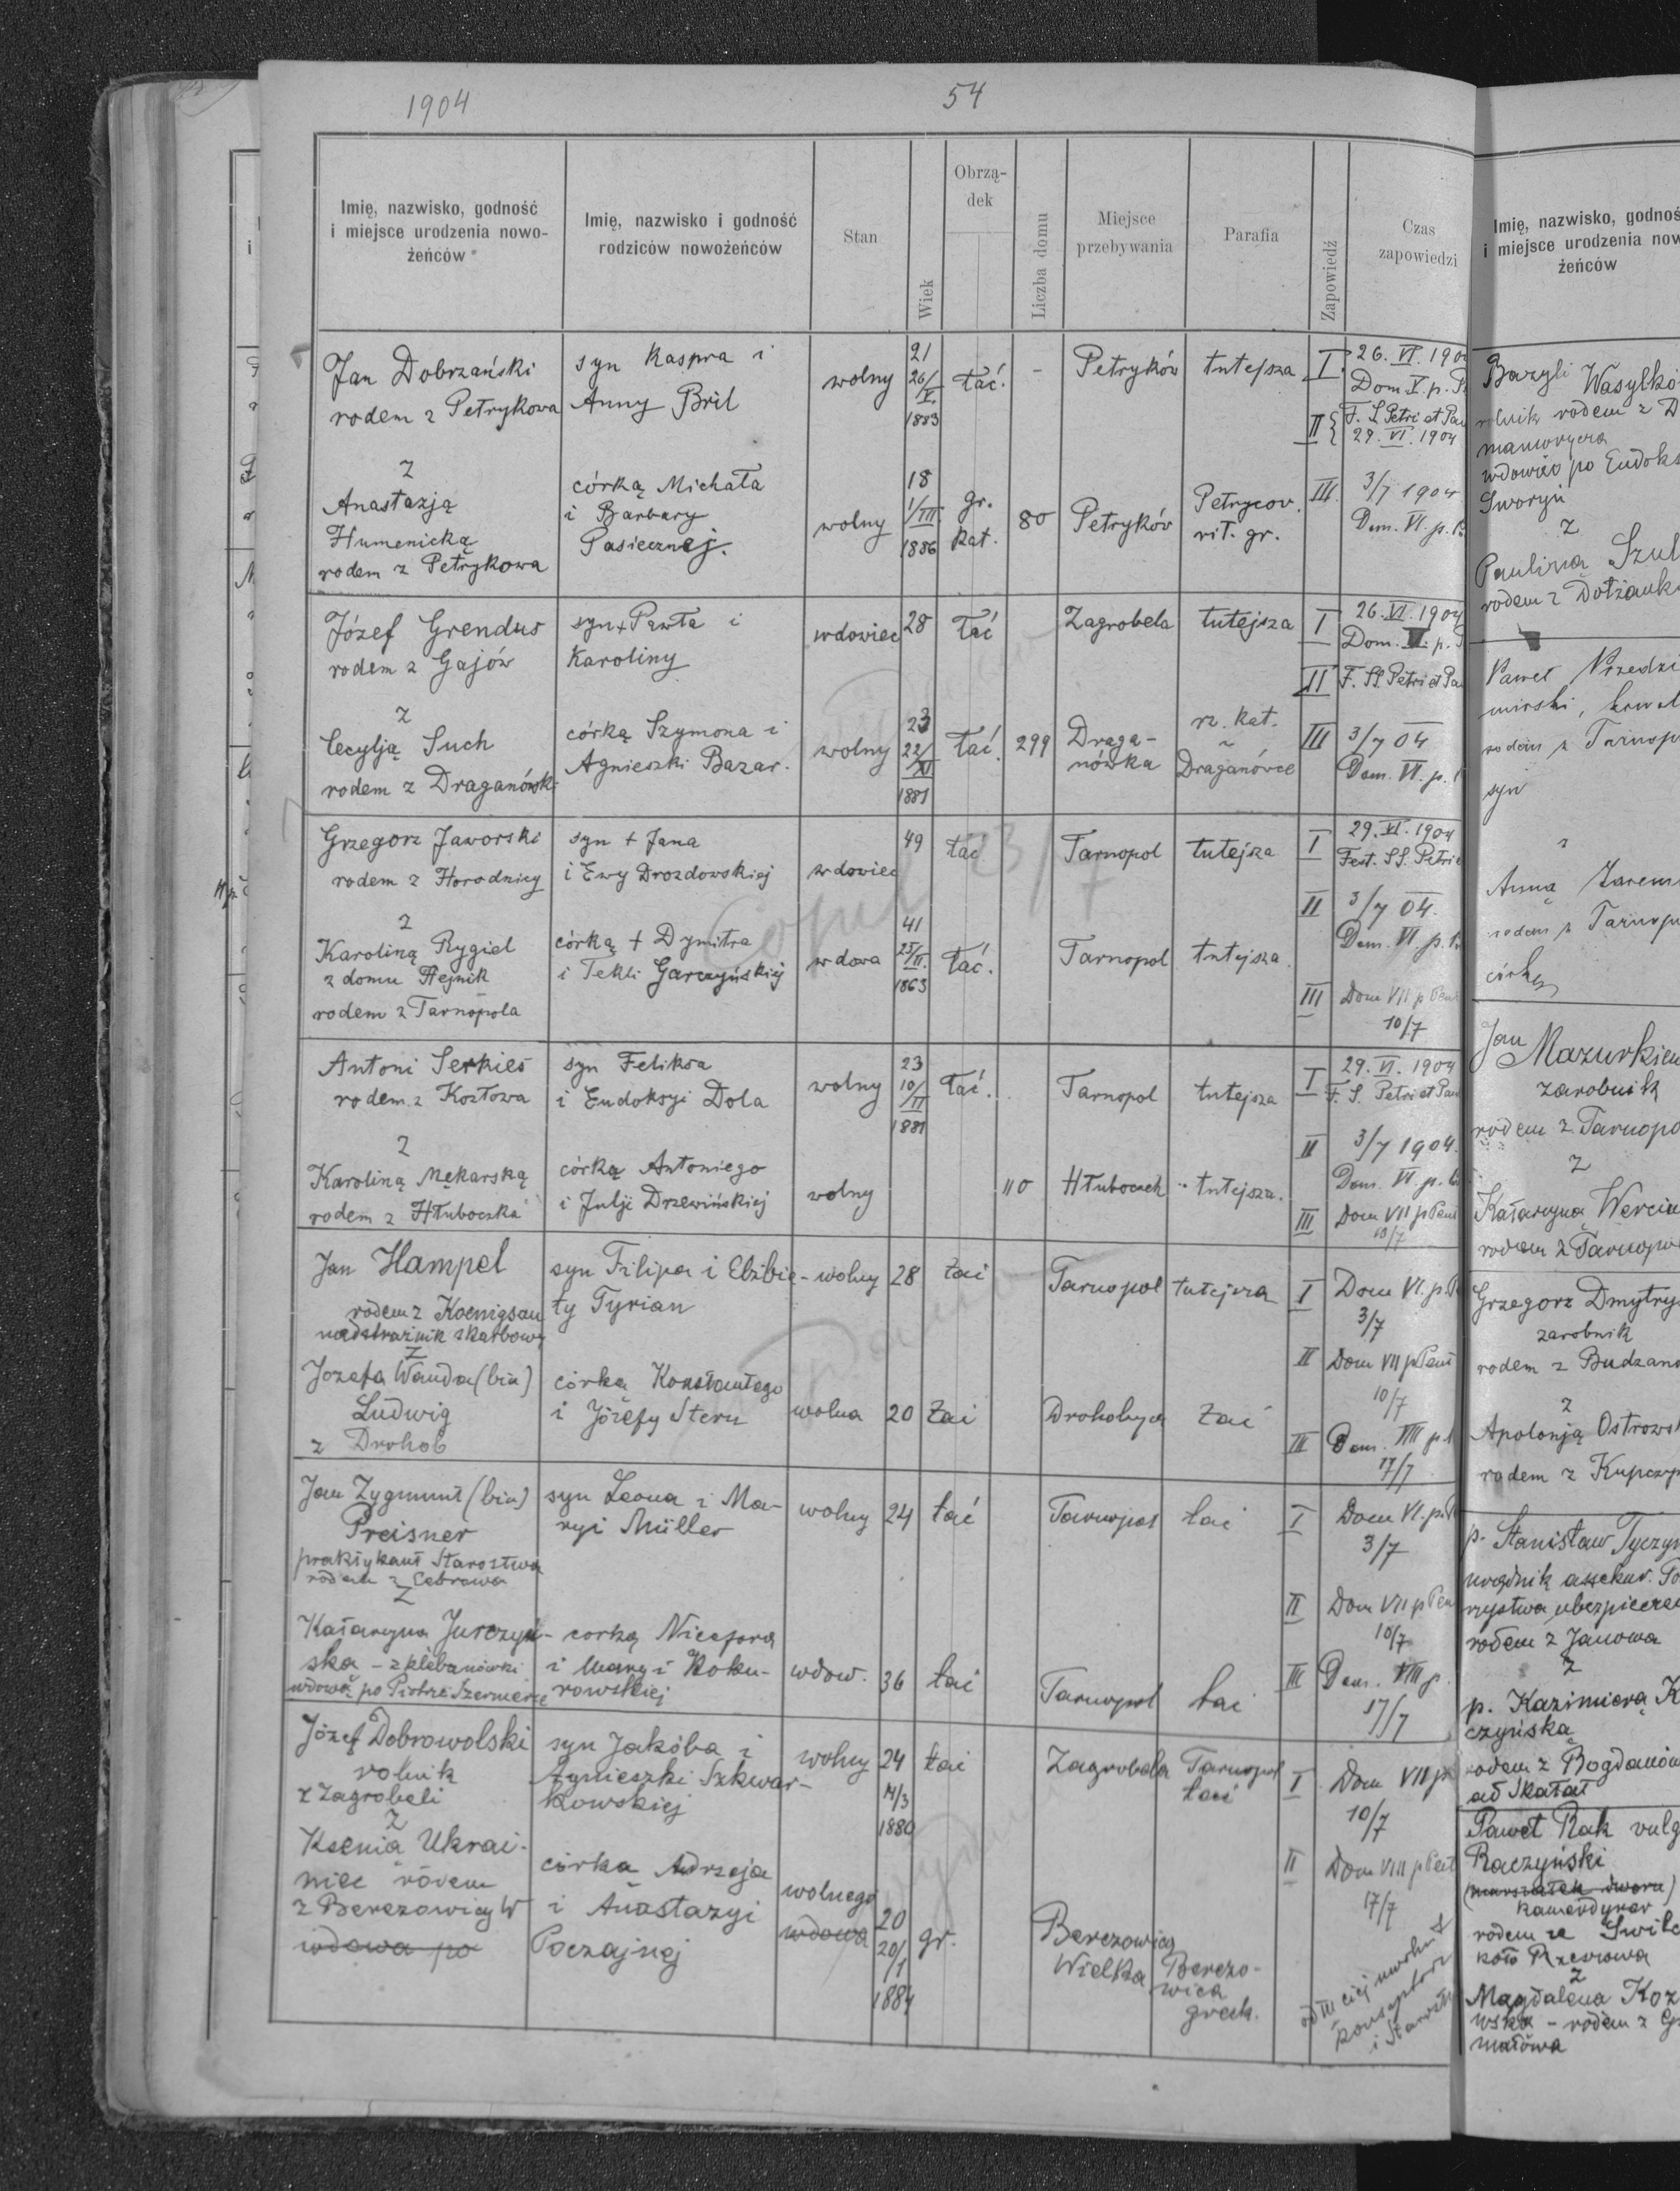 1904
54
Imię, nazwisko, godność
i miejsce urodzenia nowo-
żeńców
Imię, nazwisko i godność
rodziców nowożeńców
Stan
Wiek
Obrzą-
dek
Liczba domu
Miejsce
przebywania
Parafia
Zapowiedź
Czas
zapowiedzi
Jan Dobrzański
rodem z Petrykowa
syn Kaspra i
Anny Bril
wolny
21
26/
V.
1883
łać.
-
Petryków
tutejsza
I.
26. VI. 190
Dom. V. p. P
II {
F. S. Petri et Pau
29. VI. 1904
z
Anastazją
Humenicką
rodem z Petrykowa
córką Michała
i Barbary
Pasiecznej.
wolny
18
1/III.
1886
gr.
kat.
80
Petryków
Petrycov.
rit. gr.
III.
3/7 1904
Dom. VI. p.
Józef Grendus
rodem z Gajów
syn + Pawła i
Karoliny
wdowiec
28
łać
Zagrobela
tutejsza
I
26. VI. 1904
Dom. V. p. P
II
F. SS. Petri et Pa
z
Cecylją Such
rodem z Draganówk
córką Szymona i
Agnieszki Bazar.
wolny
23
22/
XI
1881
łać.
299
Draga-
nówka
rz. kat.
~
Draganówce
III
3/7 04
Dom. VI. p.
Grzegorz Jaworski
rodem z Horodnicy
syn + Jana
i Ewy Drozdowskiej
wdowiec
49
łać
Tarnopol
tutejsza
I
29. VI. 1904
Fest. SS. Petri e
II
3/7 04.
Dom. VI. p. P
z
Karoliną Rygiel
z domu Hejnik
rodem z Tarnopola
córką + Dymitra
i Tekli Garczyńskiej
wdowa
41
25/
II.
1863
łać.
Tarnopol
tutejsza.
III
Dom VII p Pent
10/7
Antoni Serkies
rodem z Kozłowa
syn Feliksa
i Eudoksyi Dola
wolny
23
10/
II
1881
łać.
Tarnopol
tutejsza
I
29. VI. 1904
F. S. Petri et Pau
II
3/7 1904.
Dom. VI. p.
z
Karoliną Mękarską
rodem z Hłuboczka
córką Antoniego
i Julji Drzewińskiej
wolny
110
Hłuboczek
tutejsza.
III
Dom VII p Pent
10/7
Jan Hampel
rodem z Koenigsau
nadstrażnik skarbowy
syn Filipa i Elżbie-
ty Tyrian
wolny
28
łać
Tarnopol
tutejsza
I
Dom VI. p. P
3/7
II
Dom VII p Pent
10/7
z
Jozefa Wanda (bin)
Ludwig
z Drohob
córką Konstantego
i Józefy Stern
wolna
20
łać
Drohobycz
łać
III
Dom. VIII p
17/7
Jan Zygmunt (bin)
Preisner
praktykant Starostwa
rodem z Cebrowa
syn Leona i Ma-
ryi Müller
wolny
24
łać
Tarnopol
łać
I
Dom VI. p. P
3/7
II
Dom VII p Pen
10/7
z
Katarzyna Jurczyń-
ska - z Klebanówki
wdową po Piotrze Szermerze
corką Nicefora
i Maryi Koku-
rowskiej
wdow.
36
łać
Tarnopol
łać
III
Dom. VIII p.
17/7
Józef Dobrowolski
rolnik
z Zagrobeli
syn Jakóba i
Agnieszki Szkwar-
kowskiej
wolny
24
14/3
1880
łać
Zagrobela
Tarnopol
łać
I
Dom VII p
10/7
II
Dom VIII p Pent
17/7
z
Ksenią Ukrai-
niec rodem
z Berezowicy W
wdowa po
córka Andrzeja
i Anastazyi
Poczajnej
wolnego
wdowa
20
20/1
1884
gr.
Berezowica
Wielka
Berezo-
wica
greck.
od III ciej uwoln
konsystorz
i Starost
Imię, nazwisko, godnoś
i miejsce urodzenia now
żeńców
Bazyli Wasylkó
rolnik rodem z D
wdowiec po Eudoks
Sworyń
z
Pauliną Szul
rodem z Dołżank
Paweł Przedzi
mirski, kowal
rodem z Tarnop
syn
z
Anną Zarem
rodem z Tarnop
córką
Jan Mazurkiew
zarobnik
rodem z Tarnopo
z
Katarzyną Werciu
rodem z Tarnopol
Grzegorz Dmytry
zarobnik
rodem z Budzano
z
Apolonją Ostrows
rodem z Kupczy
p. Stanisław Tyczy
urzędnik assekur. To
rzystwa ubezpiecze
rodem z Janowa
z
p. Kazimierą K
czyńską
rodem z Bogdanów
ad Skałat
Paweł Rak vulg
Raczyński
(marszałek dworu)
kamerdyner
rodem ze Swilc
koło Rzeszowa
z
Magdalena Koz
wska - rodem z G
małowa